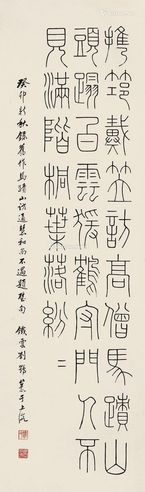 携筇戴笠訪高僧馬蹟山
頭蹋白雲猨鶴守門人不
見滿階桐葉落紛〻
癸卯新秋錄舊作馬蹟山訪道慧和尚不遇題壁句 鐵雲劉鶚篆于上海